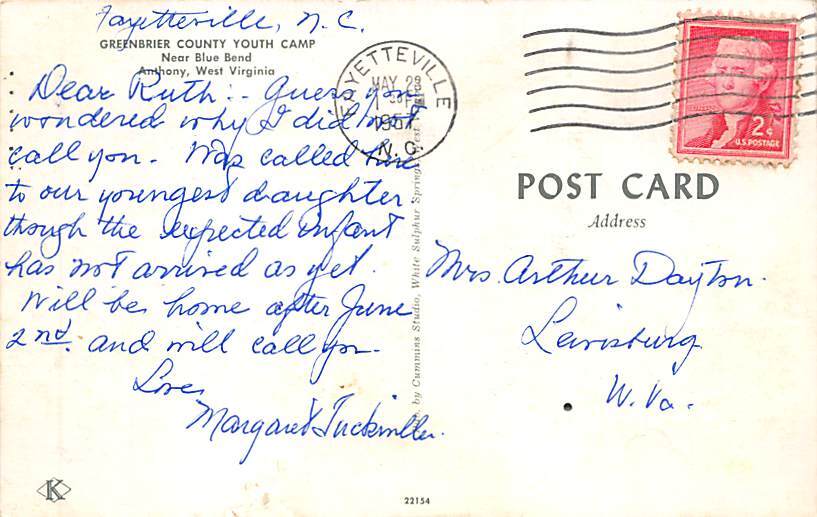 Fayetteville, N.C.
GREENBRIER COUNTY YOUTH CAMP
Near Blue Bend
Anthony, West Virginia
Dear Ruth:- Guess you
wondered why I did not
call you. Was called here
to our youngest daughter
though the expected infant
has not arrived as yet.
Will be home after June
2nd. and will call you.
Love,
Margaret Tuckwiller.
FAYETTEVILLE
MAY 29
1957
N.C.
2¢
U.S. POSTAGE
POST CARD
Address
Mrs. Arthur Dayton.
Lewisburg
W. Va.
by Cummins Studio, White Sulphur Springs, West
K
22154